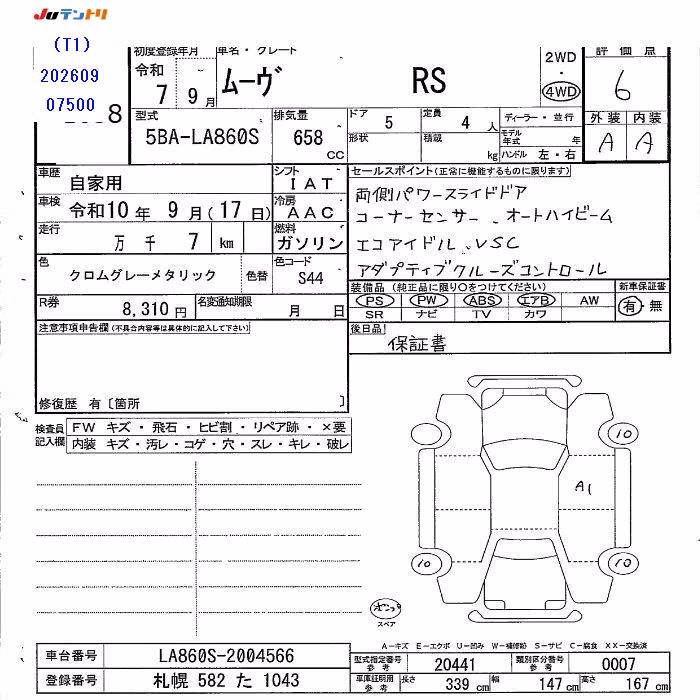 JUテントリ
(T1)
202609
07500
8
初度登録年月
令和
7 9月
車名・グレード
ムーヴ RS
2WD
・
4WD
評価点
6
型式
5BA-LA860S
排気量
658 cc
ドア 5
形状
定員 4 人
積載 kg
ディーラー・並行
モデル年式 年
ハンドル 左・右
外装 内装
A A
車歴 自家用
シフト IAT
車検 令和10年 9月(17日)
冷房 AAC
走行 万 千 7 km
燃料 ガソリン
色 クロムグレーメタリック 色替
色コード S44
R券 8,310円
名変通知期限 月 日
セールスポイント(正常に機能するものに限ります)
両側パワースライドドア
コーナーセンサー、オートハイビーム
エコアイドル、VSC
アダプティブクルーズコントロール
装備品(純正品に限り○をつけてください)
PS PW ABS エアB AW
SR ナビ TV カワ
新車保証書
有・無
後日品
保証書
注意事項申告欄(不具合内容等は具体的に記入して下さい)
修復歴 有〔箇所 〕
検査員記入欄
FW キズ・飛石・ヒビ割・リペア跡・×要
内装 キズ・汚レ・コゲ・穴・スレ・キレ・破レ
10
A1
10
10
ポンプ
スペア
A-キズ E-エクボ U-凹み W-補修跡 S-サビ C-腐食 XX-交換済
車台番号 LA860S-2004566
登録番号 札幌 582 た 1043
型式指定番号 参考 20441
類別区分番号 参考 0007
車庫証明用 参考 長さ 339 cm 幅 147 cm 高さ 167 cm